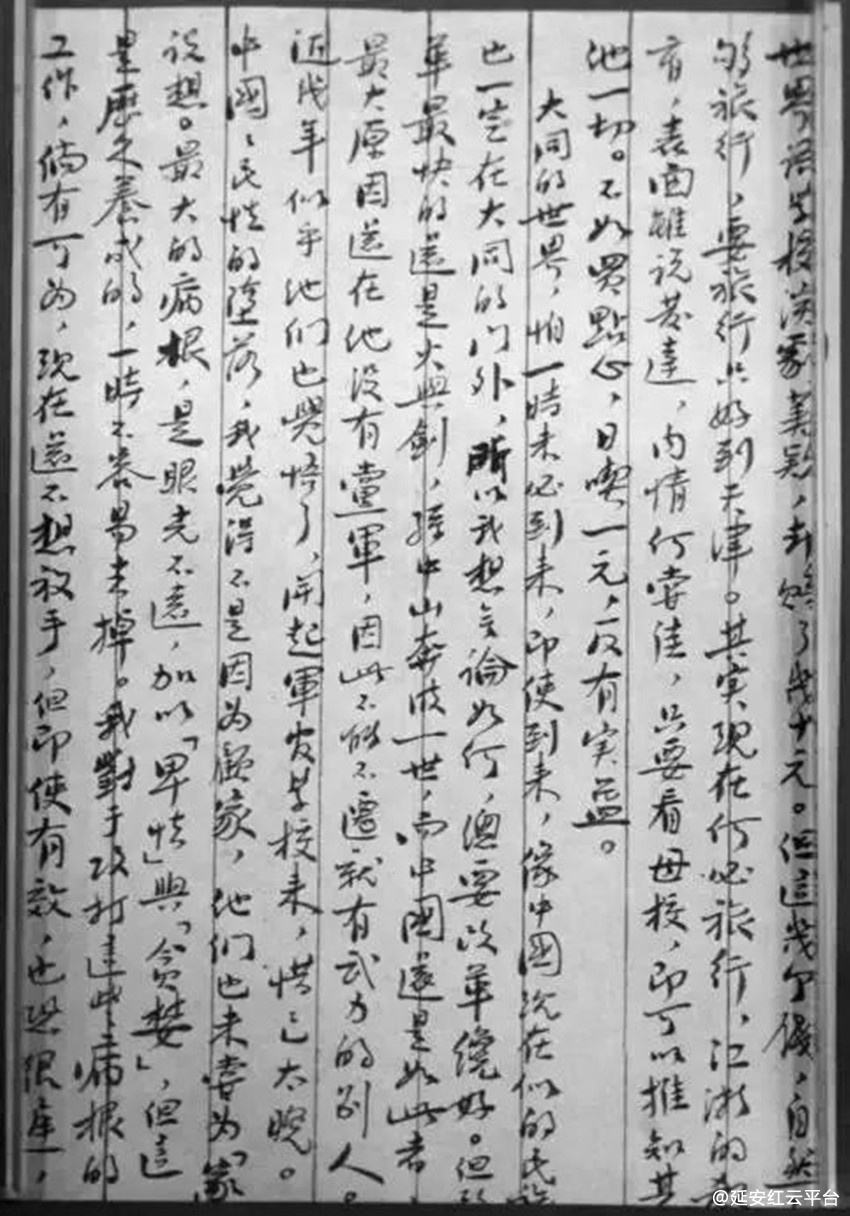 世界语学校演豪义务，却赔了几十元。但这几个钱，自然
够旅行，要旅行只好到天津。其实现在何必旅行，江浙的教
育，表面雖说發達，内情何嘗佳，只要看母校，即可以推知其
他一切。不如買點心，日喫一元，反有实益。
大同的世界，怕一時未必到来，即使到来，像中國现在似的民族
也一定在大同的门外，所以我想无論如何，總要改革纔好。但改
革最快的還是火與劍，孫中山奔波一世，而中國還是如此者，
最大原因還在他没有黨軍，因此不能不遷就有武力的别人。
近几年似乎他们也覺悟了，開起軍官学校来，惜已太晚。
中國國民性的墮落，我覺得不是因为顧家，他们也未嘗为「家」
设想。最大的病根，是眼光不遠，加以「卑怯」與「贪婪」，但這
是歷久養成的，一時不容易去掉。我對于攻打這些病根的
工作，倘有可为，现在還不想放手，但即使有效，也恐很遲，
@延安红云平台